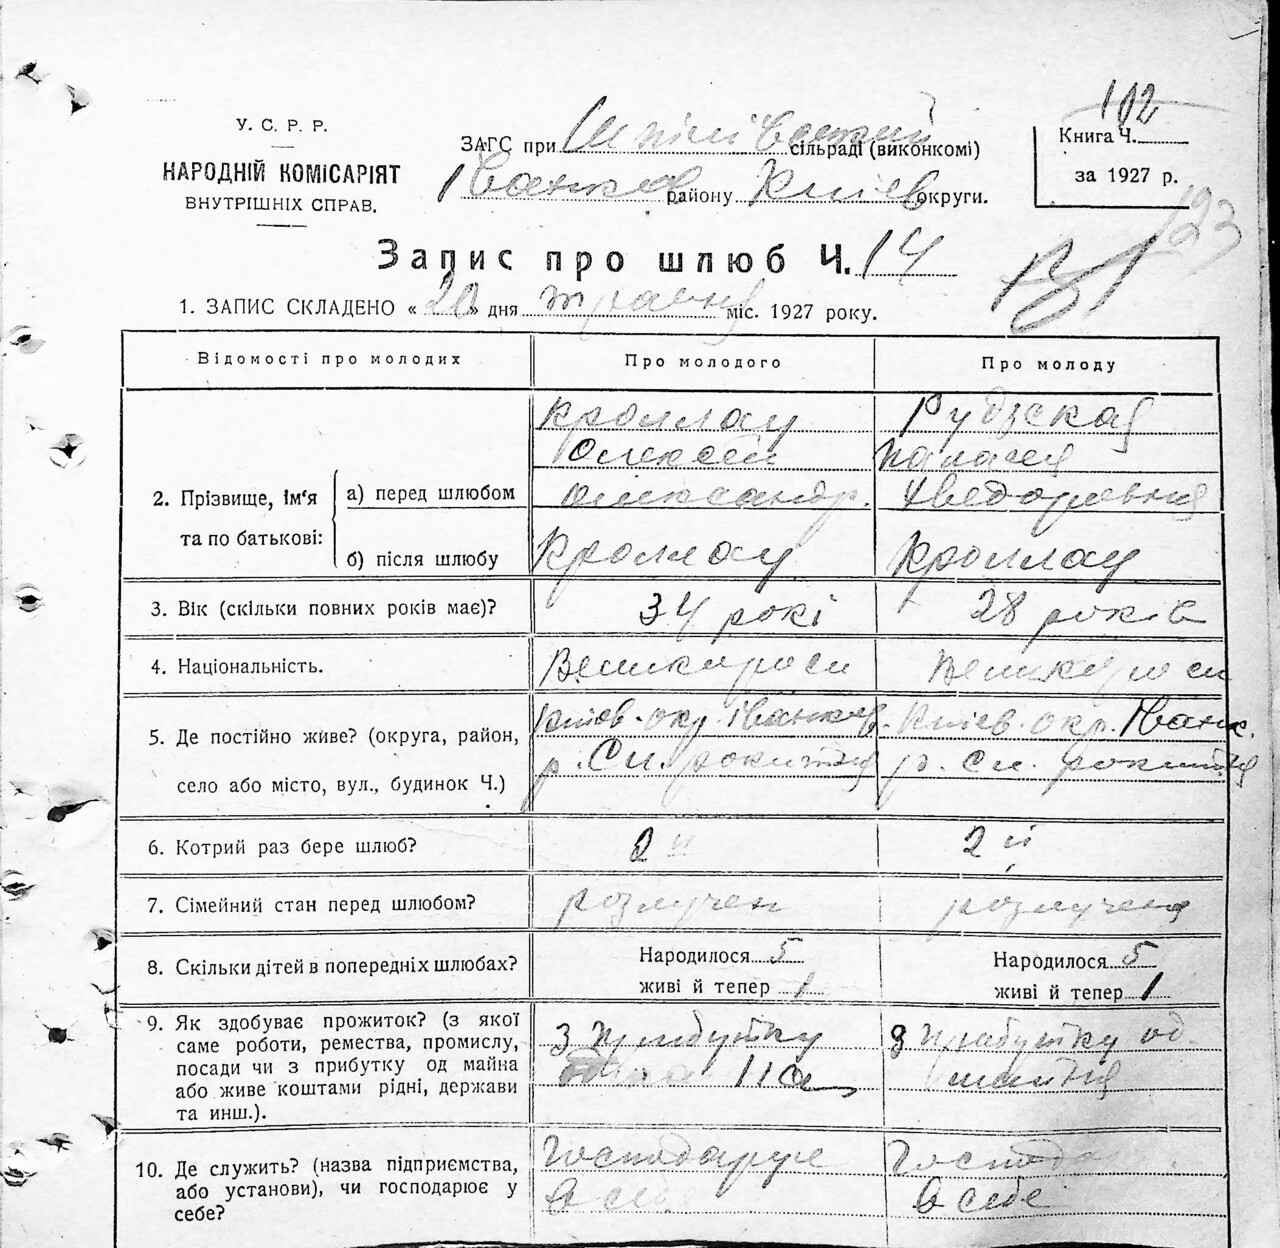 102
У. С. Р. Р.
НАРОДНІЙ КОМІСАРІЯТ
ВНУТРІШНІХ СПРАВ.
ЗАГС при сільраді (виконкомі)
Іванков району Київ округи.
Книга Ч.
за 1927 р.
123
Запис про шлюб Ч. 14
1. ЗАПИС СКЛАДЕНО « 20 » дня травня міс. 1927 року.
Відомості про молодих Про молодого Про молоду
2. Прізвище, ім'я та по батькові:
а) перед шлюбом
Кроллау Рудзская
Олексей Палагея
Олександр. Хведоревна
б) після шлюбу Кроллау Кроллау
3. Вік (скільки повних років має)? 34 рокі 28 років
4. Національність. Великороси Великороси
5. Де постійно живе? (округа, район, село або місто, вул., будинок Ч.)
Київ. окр. Іванков. Київ. окр. Іванк.
р. Сл. рокитня р. Сл. рокитня
6. Котрий раз бере шлюб? 2й 2й
7. Сімейний стан перед шлюбом? розлучен розлучена
8. Скільки дітей в попередніх шлюбах? Народилося 5 Народилося 5
живі й тепер 1 живі й тепер 1
9. Як здобуває прожиток? (з якої саме роботи, ремества, промислу, посади чи з прибутку од майна або живе коштами рідні, держави та инш.).
З прибутку З прибутку од
майня
10. Де служить? (назва підприємства, або установи), чи господарює у себе?
Господарує
в себе в себе